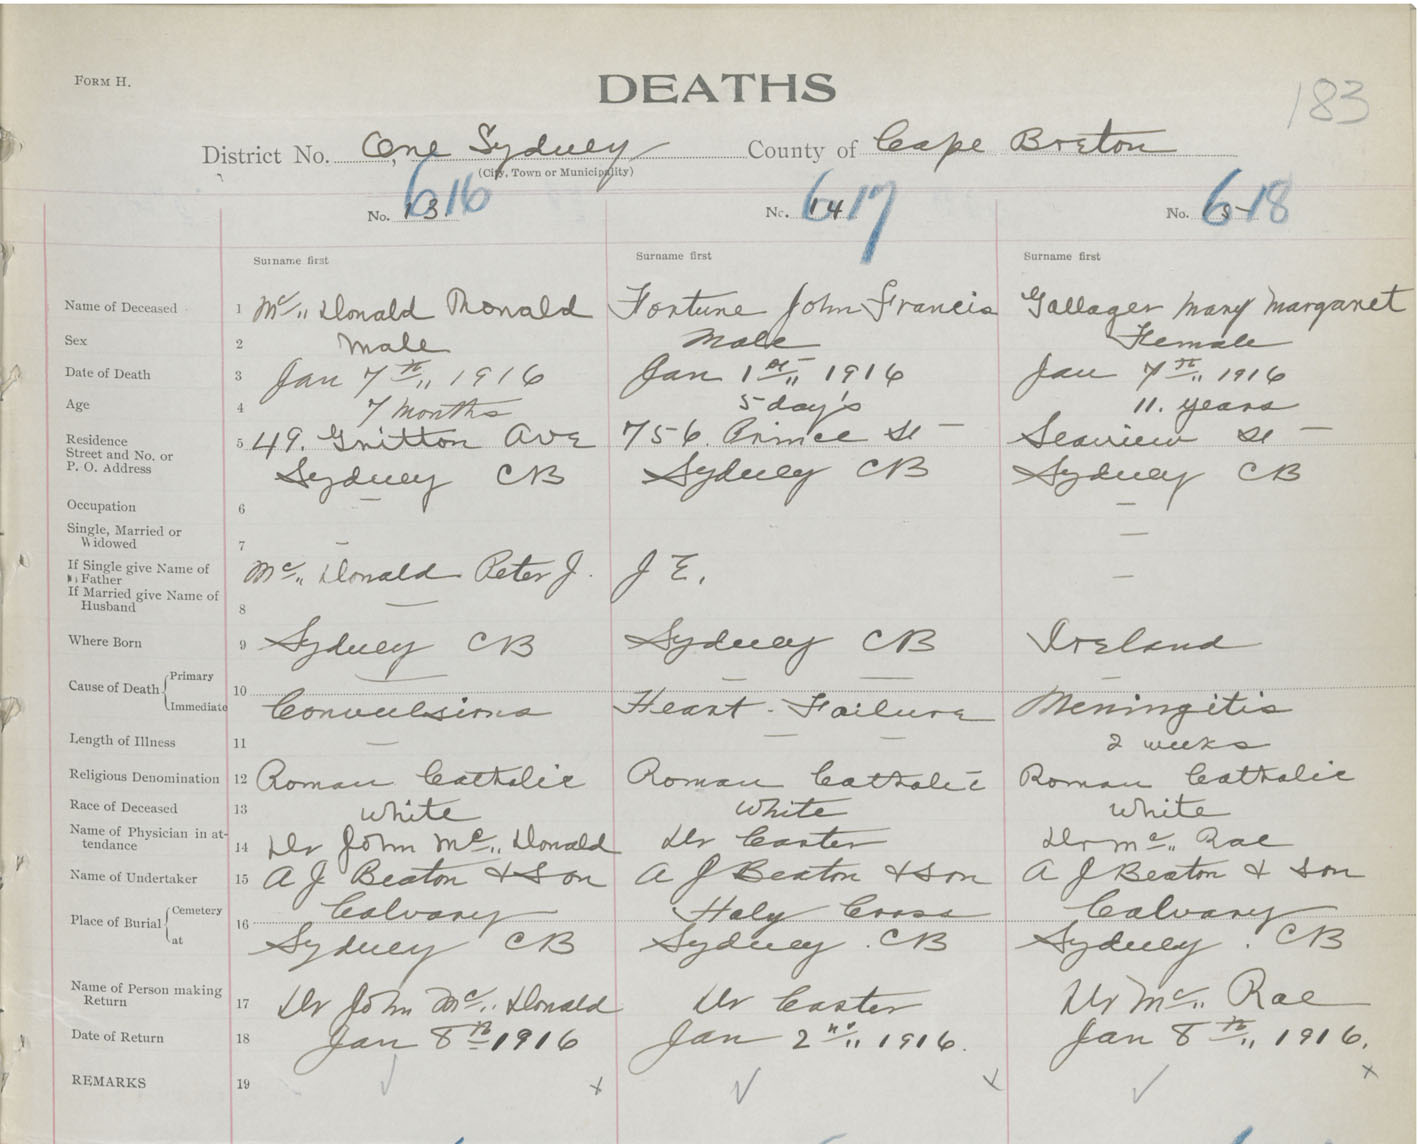 FORM H.
DEATHS
183
District No. One Sydney County of Cape Breton
(City, Town or Municipality)
No. 13 616 No. 14 617 No. 15 618
Surname first Surname first Surname first
Name of Deceased 1 Mc,, Donald Ronald Fortune John Francis Gallager Mary Margaret
Sex 2 Male Male Female
Date of Death 3 Jan 7th,, 1916 Jan 1st,, 1916 Jan 7th,, 1916
Age 4 7 months 5 day's 11. years
Residence
Street and No. or 5 49. Ave 756. Prince St – Seaview St –
P. O. Address Sydney CB Sydney CB Sydney CB
Occupation 6 – –
Single, Married or
Widowed 7 – –
If Single give Name of
Father Mc,, Donald Peter J. J E. –
If Married give Name of
Husband 8 –
Where Born 9 Sydney CB Sydney CB Ireland
Cause of Death Primary 10 – – – –
Immediate Convulsions Heart - Failure Meningitis
Length of Illness 11 – – – 2 weeks
Religious Denomination 12 Roman Catholic Roman Catholic Roman Catholic
Race of Deceased 13 White White White
Name of Physician in at-
tendance 14 Dr John Mc,, Donald Dr Dr Mc,, Rae
Name of Undertaker 15 A J Beaton & Son A J Beaton & Son A J Beaton & Son
Place of Burial Cemetery 16 Calvary Holy Cross Calvary
at Sydney CB Sydney . CB Sydney . CB
Name of Person making
Return 17 Dr John Mc,, Donald Dr Dr Mc,, Rae
Date of Return 18 Jan 8th 1916 Jan 2nd,, 1916. Jan 8th,, 1916.
REMARKS 19 ✓ x ✓ x ✓ x